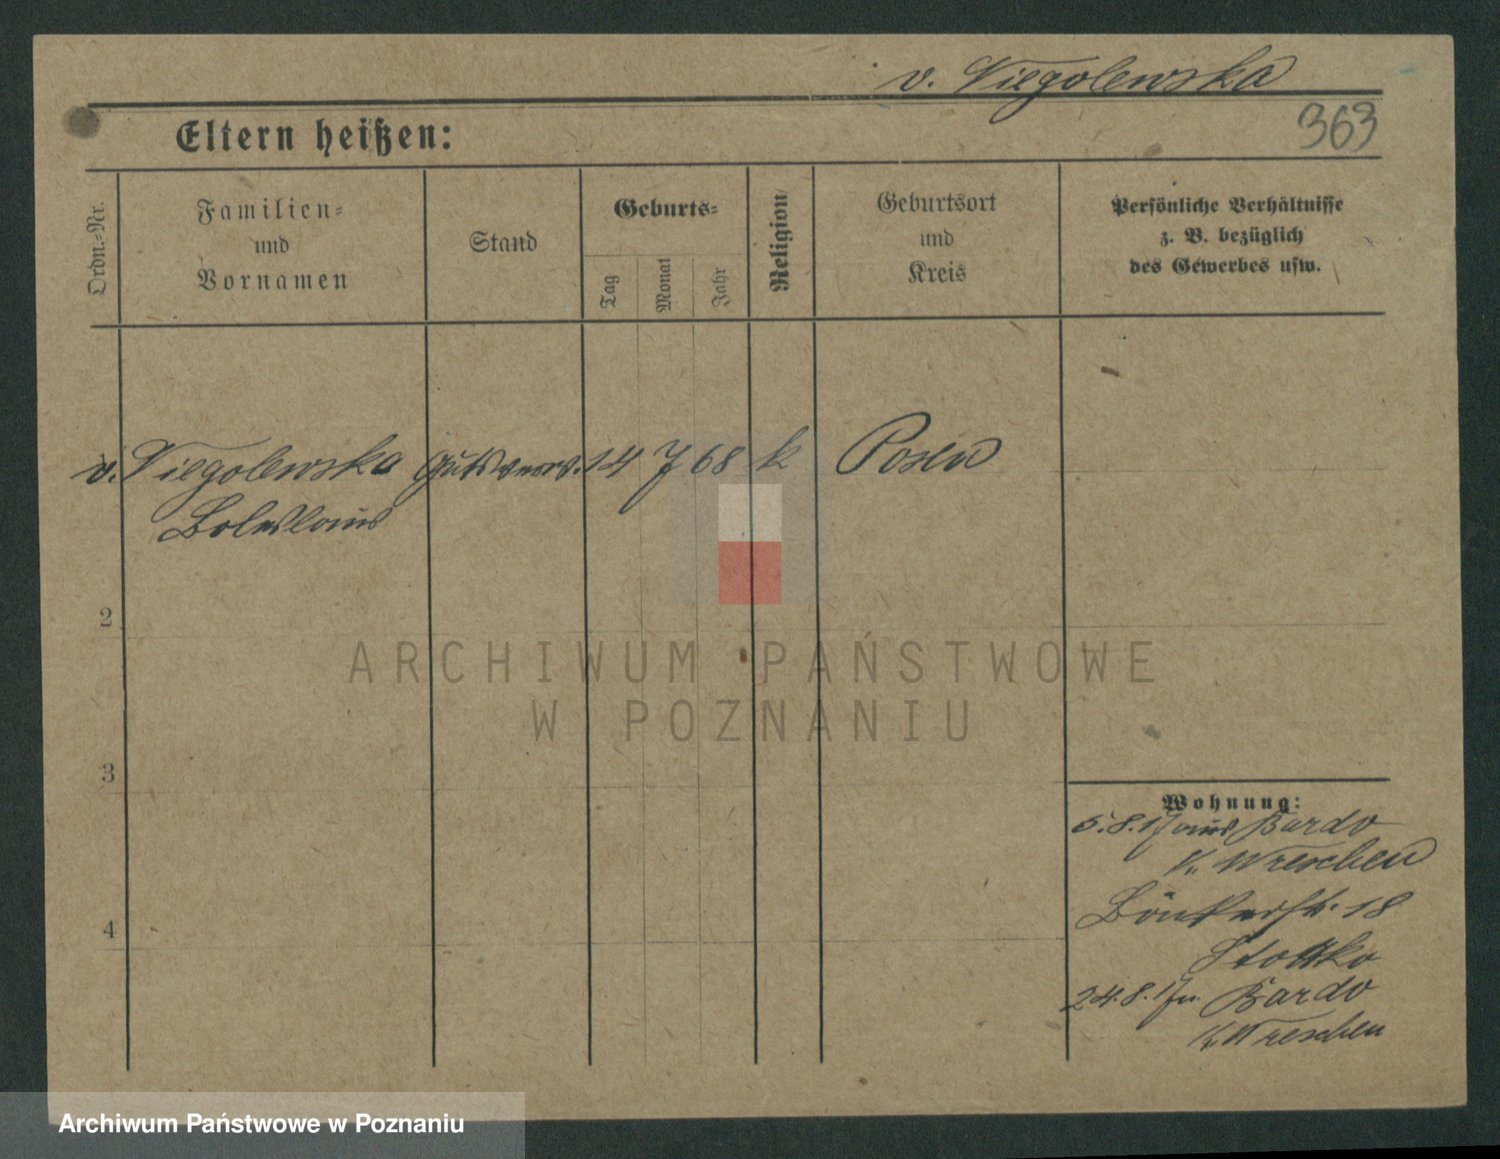 v. Niegolewska
363
Eltern heißen:
Ordn.-Nr.
Familien-
und
Vornamen
Stand
Geburts-
Tag
Monat
Jahr
Religion
Geburtsort
und
Kreis
Persönliche Verhältnisse
z. B. bezüglich
des Gewerbes usw.
v. Niegolewska
14 7 68 k Posen
Boleslaus
2
3
4
Wohnung:
5.8.17 aus Bardo
K. Wreschen
18
24.8.17 n. Bardo
K. Wreschen
ARCHIWUM PAŃSTWOWE
W POZNANIU
Archiwum Państwowe w Poznaniu